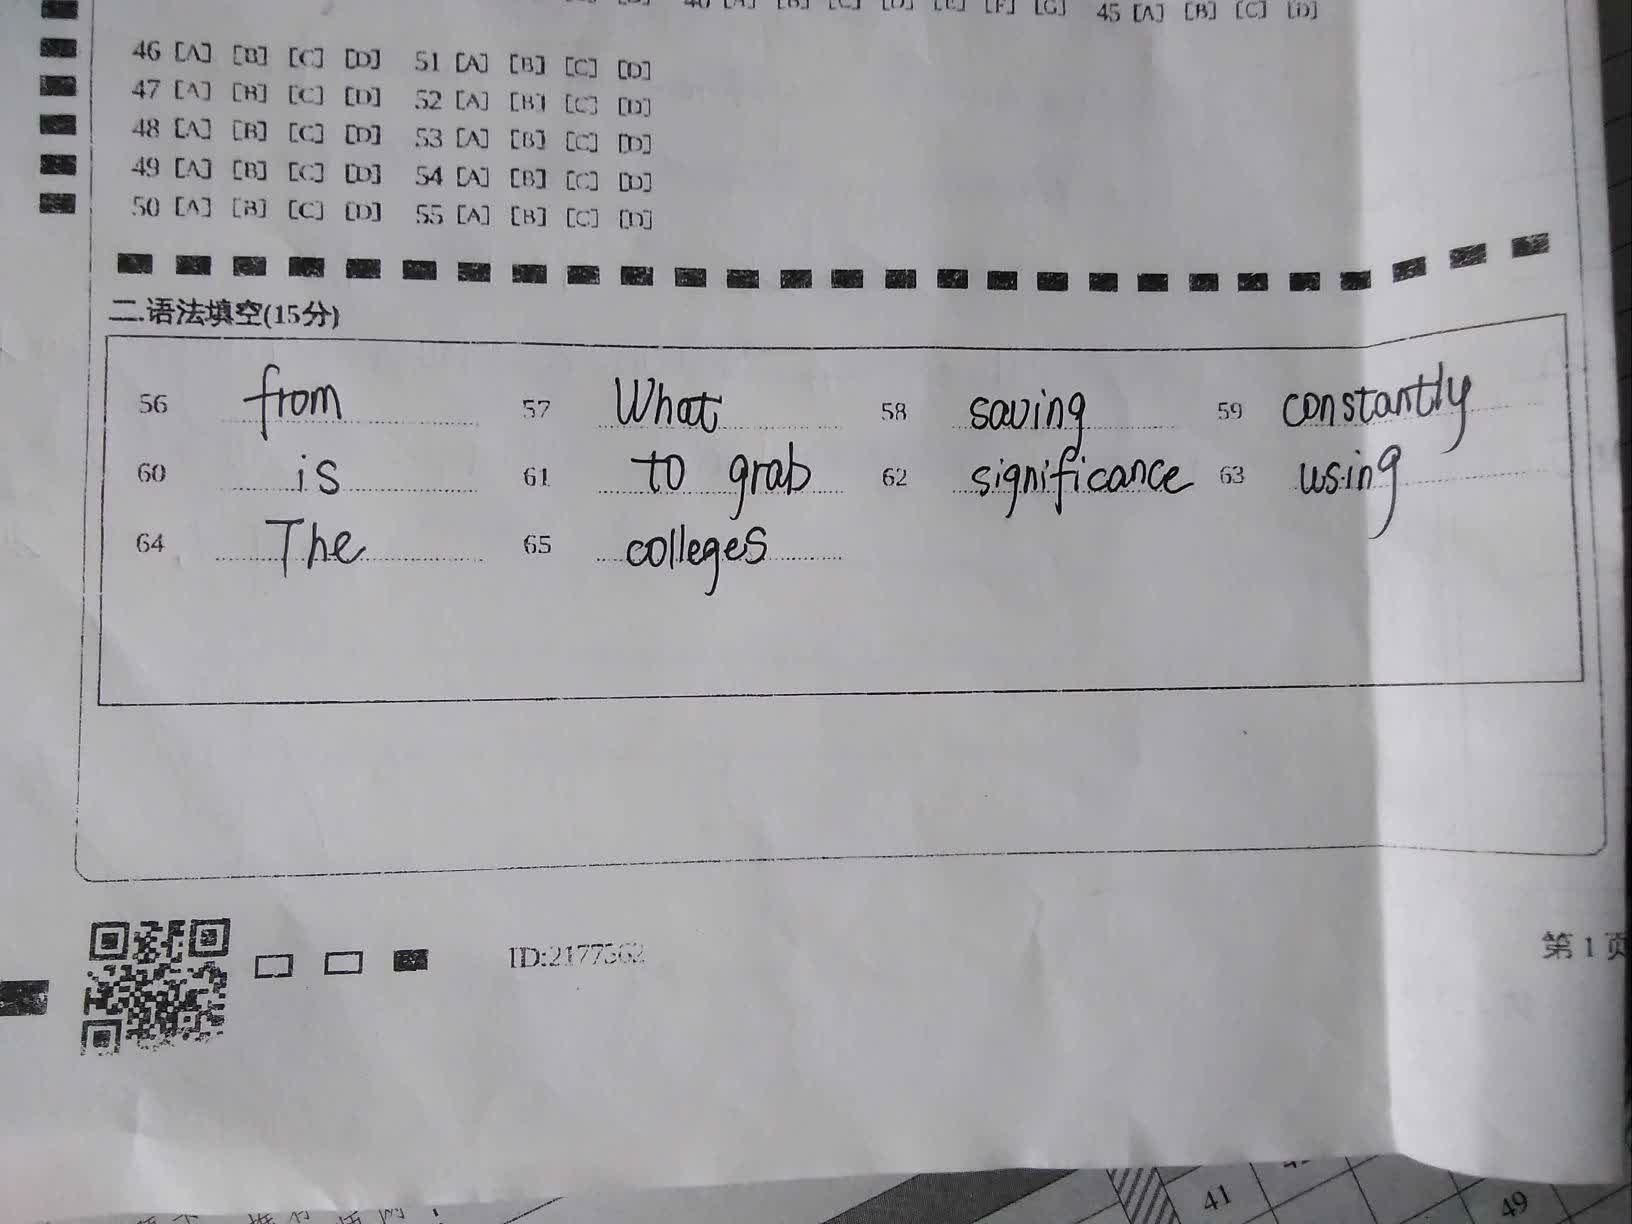 45 [A] [B] [C] [D]
46 [A] [B] [C] [D] 51 [A] [B] [C] [D]
47 [A] [B] [C] [D] 52 [A] [B] [C] [D]
48 [A] [B] [C] [D] 53 [A] [B] [C] [D]
49 [A] [B] [C] [D] 54 [A] [B] [C] [D]
50 [A] [B] [C] [D] 55 [A] [B] [C] [D]
二.语法填空(15分)
56 from 57 What 58 saving 59 constantly
60 is 61 to grab 62 significance 63 using
64 The 65 colleges
ID:2177562
第1页
41
49